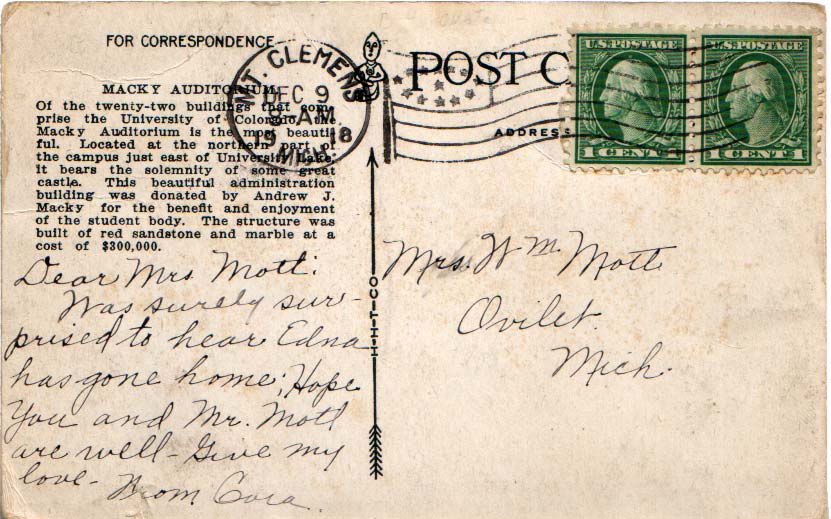 FOR CORRESPONDENCE
MACKY AUDITORIUM.
Of the twenty-two buildings that com-
prise the University of Colorado, the
Macky Auditorium is the most beauti-
ful. Located at the northern part of
the campus just east of University Lake;
it bears the solemnity of some great
castle. This beautiful administration
building was donated by Andrew J.
Macky for the benefit and enjoyment
of the student body. The structure was
built of red sandstone and marble at a
cost of $300,000.
MT. CLEMENS
DEC 9
8 AM
1918
MICH.
POST C
ADDRESS
U.S. POSTAGE
1 CENT 1
U.S. POSTAGE
1 CENT 1
H-H-T-CO
Dear Mrs Mott:
Was surely sur-
prised to hear Edna
has gone home; Hope
You and Mr. Mott
are well - Give my
love - From Cora.
Mrs. Wm Mott
Ovilet.
Mich.